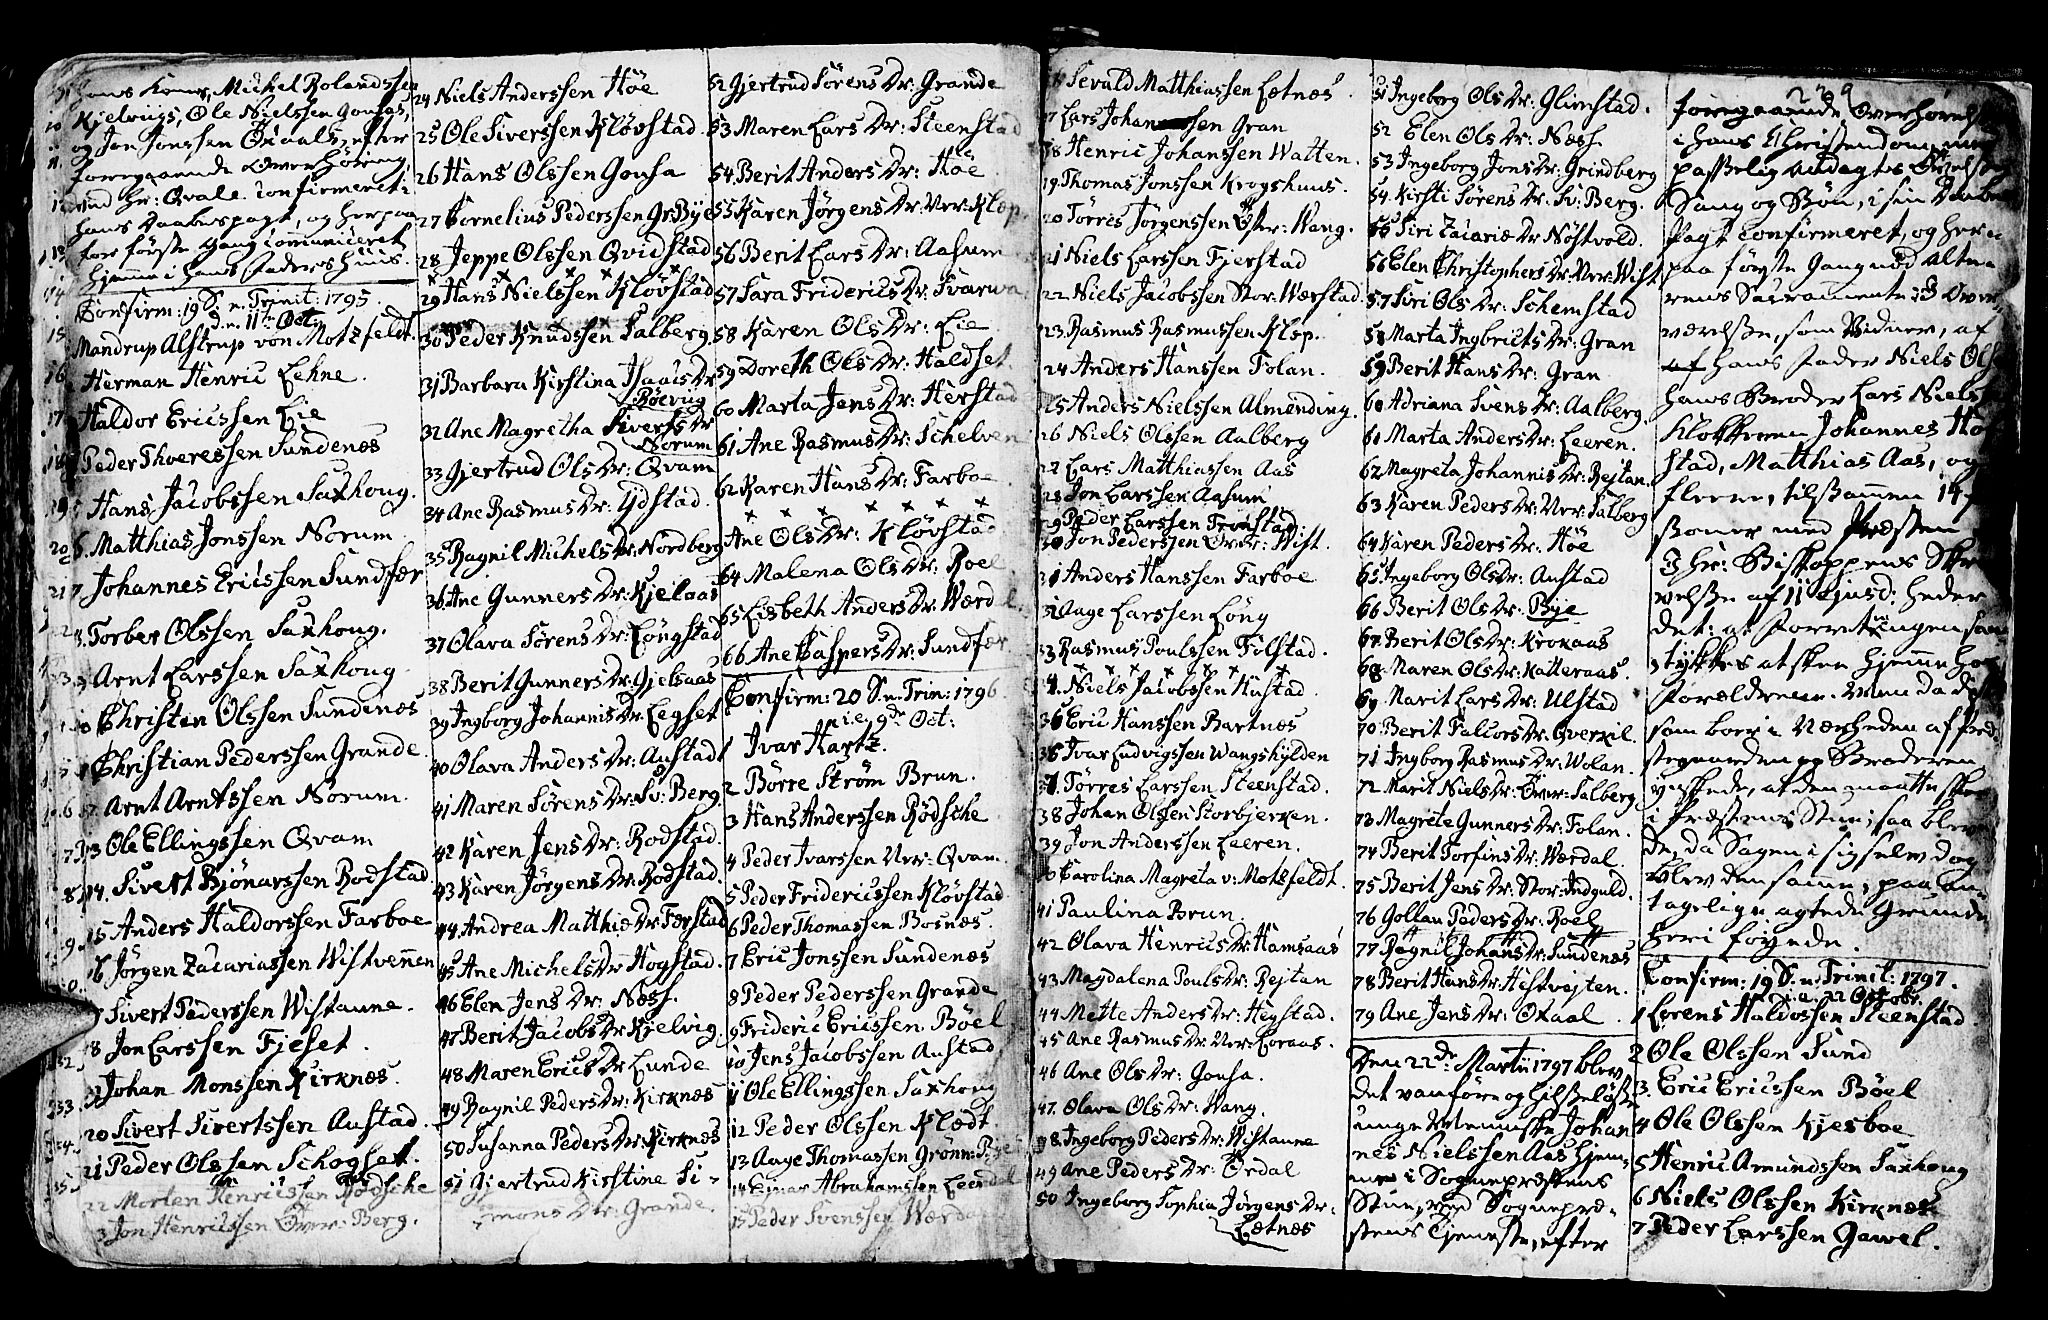 hans Kones, Michel Rolandssen
Kjelvigs, Ole Nielssen Gousas,
og Jon Jonssen Oxaals, efter
foregaaende Overhøring,
ved Hr: Qvale confirmeret i
hans Daabespagt, og herpaa
for første Gang communiceret
hjemme i hans Faders Huus.
Confirm: 19 S. n. Trinit: 1795.
d. n. 11te Oct:
Mandrup Alstrup von Motzfeldt.
Herman Henric Lehne.
Haldor Ericssen Lie
Peder Thveressen Sundenæs
Hans Jacobssen Saxhoug.
6. Matthias Jonssen Norum
7 Johannes Ericssen Sundfær
8. Torber Olssen Saxhoug.
9 Arnt Larssen Saxhoug
Christen Olssen Sundenæs
Christian Pederssen Grande
12 Arnt Arntssen Norum.
13 Ole Ellingssen Qvam
14. Sivert Bjönarssen Rodstad
15 Anders Haldorssen Farboe
16 Jörgen Zacariassen Wistvennen
7 Sivert Pederssen Wistaune.
8 Jon Larssen Fjeset.
Johan Monssen Kirknæs.
20 Sivert Sivertssen Austad.
21 Peder Olssen Schogset.
22 Morten Henricssen Rødsche
3 Jon Henricssen Över: Berg.
24 Niels Anderssen Höe
25 Ole Siverssen Klövstad
26 Hans Olssen Gousa
27 Cornelius Pederssen Gr: Bye
28 Jeppe Olssen Qvidstad
29 Hans Nielssen Klövstad
30 Peder Knudssen Salberg
31 Barbara Kirstina Isaacs Dr
Böevug
32 Ane Magretha Siverss Dr
Norum
33 Gjertrud Ols Dr: Qvam
34 Ane Rasmus Dr: Ydstad
35 Ragnil Michels Dr: Nordberg
36 Ane Gunners Dr: Kjelaas
37 Olava Sørens Dr: Löngstad
38 Berit Gunners Dr: Gjelsaas
39 Ingborg Johannis Dr: Legset
40 Olava Anders Dr: Austadt
41 Maren Sörens Dr: Sv: Berg
42 Karen Jens Dr: Rodstad.
43 Karen Jörgens Dr: Rodstad.
44 Andrea Matthiæ Dr: Færstad
45 Ane Michels Dr: Hogstad.
46 Elen Jens Dr: Næss.
47 Berit Jacobs Dr: Kjelvig.
48 Maren Erics Dr: Lunde
49 Ragnil Peders Dr: Kirknæs
50 Susanna Peders Dr: Kirknæs
51 Gjertrud Kirstine Si-
mons Dr: Grande.
52 Gjertrud Sörens Dr: Grande
53 Maren Lars Dr: Steenstad
54 Berit Anders Dr: Höe
55 Karen Jörgens Dr: Ner: Klep.
56 Berit Lars Dr: Aasum
57 Sara Friderics Dr: Svarva
58 Karen Ols Dr: Lie
59 Doreth Ols Dr: Haldset.
60 Marta Jens Dr: Herstad
61 Ane Rasmus Dr: Schelven
62 Karen Hans Dr: Farboe
Ane Ols Dr: Klövstad
64 Malena Ols Dr: Roel
65 Lisbeth Anders Dr: Wærdal.
66 Ane Caspers Dr: Sundfær
Confirm: 20 S. n. Trin: 1796
i e. 9de Oct:
1 Ivar Hartz.
2 Börre Ström Brun.
3 Hans Anderssen Rödsche
4 Peder Ivarssen Ner: Qvam.
5 Peder Fridericssen Klövstad
6 Peder Thomassen Bosnæs.
7 Eric Jonssen Sundenæs
8 Peder Pederssen Grande
9 Frideric Ericssen Böel
10 Jens Jacobssen Austad
11 Ole Ellingssen Saxhoug
12 Peder Olssen Klædt.
13 Aage Thomassen Grönn: Bye
14 Einar Abrahamssen Leerdal
15 Peder Svenssen Wærdal
16 Sevald Matthiassen Lætnæs.
17 Lars Johanssen Gran
18 Henric Johanssen Watten.
19 Thomas Jonssen Krogshuus.
20 Törres Jörgenssen Öfter: Wang.
21 Niels Larssen Fjerstad
22 Niels Jacobssen Stor: Wærstad
23 Rasmus Rasmussen Klep.
24 Anders Hanssen Folan.
25 Anders Nielssen Almending.
26 Niels Olssen Aalberg
27 Lars Matthiassen Aas
28 Jon Larssen Aasum
29 Peder Larssen Tronstad:
30 Jon Pederssen Över: Wist.
31 Anders Hanssen Farboe
32 Aage Larssen Löng
33 Rasmus Poulssen Folstad.
4. Niels Jacobssen Hustad.
35 Eric Hanssen Bartnæs
36 Ivar Ludvigssen Wangshylden
37 Törres Larssen Steenstad.
38 Johan Olssen Storbjerken.
39 Jon Anderssen Leeren.
40 Carolina Magreta v: Motzfeldt.
41 Paulina Brun.
42 Olava Henrics Dr: Hamsaas
43 Magdalena Pouls Dr: Rejtan
44 Mette Anders Dr: Hegstad.
45 Ane Rasmus Dr: Ner: Loraas.
46 Ane Ols Dr: Gousa.
47. Olava Ols Dr: Wang.
48 Ingeborg Peders Dr: Wistaune
49 Ane Peders Dr: Ördal
50 Ingeborg Sophia Jörgens Dr:
Lætnæs
51 Ingeborg Ols Dr: Glimstad.
52 Elen Ols Dr: Næss.
53 Ingeborg Jons Dr: Grindberg
54 Kirsti Sörens Dr: Sv: Berg.
55 Siri Zacariæ Dr: Nöstvold.
56 Elen Christophers Dr: Ner: Wist
57 Siri Ols Dr: Schemstad
58 Marta Ingbricts Dr: Gran
59 Berit Hans Dr: Gran
60 Adriana Svens Dr: Aalberg.
61 Marta Anders Dr: Leeren.
62 Magreta Johannis Dr: Rejtan.
63 Karen Peders Dr: Ner: Salberg
64 Karen Peders Dr: Höe
65 Ingeborg Ols Dr: Austad
66 Berit Ols Dr: Bye
67 Berit Ols Dr: Kroxaas
68 Maren Ols Dr: Katteraas.
69 Marit Lars Dr: Ulstad
70 Berit Falcors Dr: Overxil.
71 Ingborg Rasmus Dr: Wolan.
72 Marit Niels Dr: Över: Salberg.
73 Magrete Gunners Dr: Folan.
74 Berit Torfins Dr: Wærdal.
75 Berit Jens Dr: Stor: Indguld.
76 Gollau Peders Dr: Roel
77 Ragnil Johans Dr: Sundenæs
78 Berit Hans Dr: Hestvejten.
79 Ane Jens Dr: Oxaal.
Den 22de Martii 1797 blev
det vanföre og hilselöse
unge Menniske Johan-
nes Nielssen Aas hjem-
me i Sogneprestens
Stue, ved Sognepre-
stens Tjeneste, efter
229
foregaaende Overhørelse
i hans Christendom, med
passelig andagts Øvelse,
Sang og Bøn, i sin Daabes
Pagt confirmeret, og her-
paa første Gang ved Alte-
rens Sacramente i Over-
værelse, som Vidner, af
af hans Fader Niels Ols
hans Broder Lars Niels
Klokkeren Johannes Hol
stad, Matthias Aas, og
fleere, tilsammen 14 per
soner med Præsten
I Hr: Biskoppens Skri
velse af 11 ejusd: heder
det: at Forretningen sam
tykkes at skee hjemme hos
Forældrene. Men da de
som boer i Nærheden af Præ
stegaarden og Broderen
ynskede, at den maatte skee
i Præstens Stue; saa blev
de, da Sagen i sig selv dog
blev densamme, paa an
tagelige agtede Grunde
heri føyede.
Confirm: 19 S. n. Trinit: 1797.
i. e. 22 Octobr.
1 Lorens Haldossen Steenstad.
2 Ole Olssen Sund
3. Eric Ericssen Böel
4 Ole Olssen Kjesboe
5 Henric Amundssen Saxhoug
6 Niels Olssen Kirknæs
7 Peder Larssen Gawel.